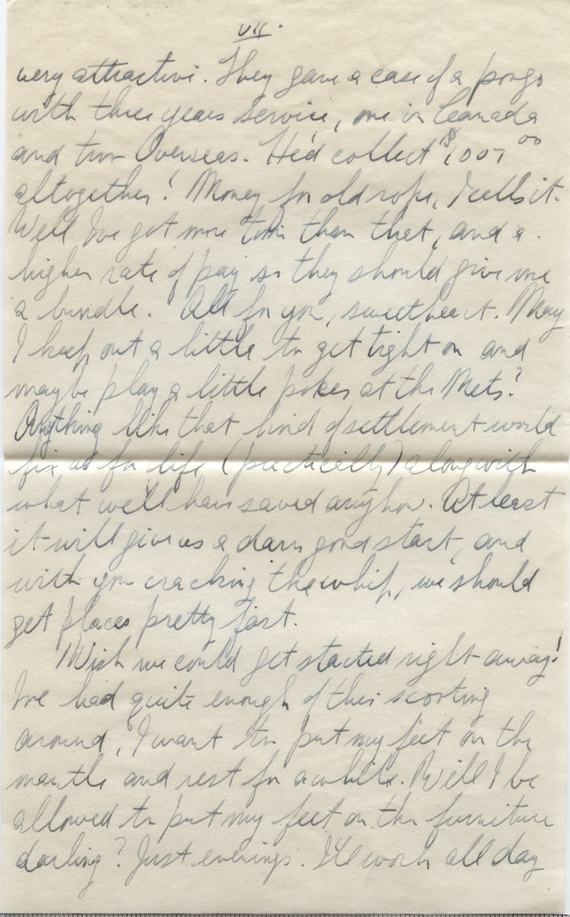 VII.
very attractive. They gave a case of a pongo
with three years service, one in Canada
and two Overseas. He'd collect $1007 00
altogether! Money for old rope, I calls it.
Well I've got more time than that, and a
higher rate of pay so they should give me
a bundle. All for you, sweetheart. May
I keep out a little to get tight on and
maybe play a little poker at the Mets?
Anything like that kind of settlement would
fix us for life (practically) along with
what we'll have saved anyhow. At least
it will give us a darn good start, and
with you cracking the whip, we should
get places pretty fast.
Wish we could get started right away!
I've had quite enough of this scooting
around, I want to put my feet on the
mantle and rest for a while. Will I be
allowed to put my feet on the furniture
darling? Just evenings. I'll work all day